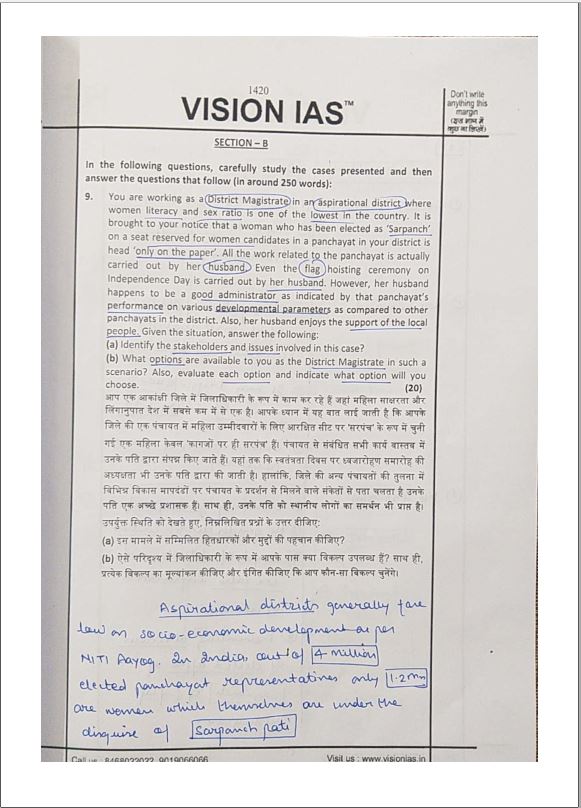 1420
VISION IAS™
Don't write
anything this
margin
(इस भाग में
कुछ ना लिखें)
SECTION – B
In the following questions, carefully study the cases presented and then
answer the questions that follow (in around 250 words):
9. You are working as a District Magistrate in an aspirational district where
women literacy and sex ratio is one of the lowest in the country. It is
brought to your notice that a woman who has been elected as 'Sarpanch'
on a seat reserved for women candidates in a panchayat in your district is
head 'only on the paper'. All the work related to the panchayat is actually
carried out by her husband. Even the flag hoisting ceremony on
Independence Day is carried out by her husband. However, her husband
happens to be a good administrator as indicated by that panchayat's
performance on various developmental parameters as compared to other
panchayats in the district. Also, her husband enjoys the support of the local
people. Given the situation, answer the following:
(a) Identify the stakeholders and issues involved in this case?
(b) What options are available to you as the District Magistrate in such a
scenario? Also, evaluate each option and indicate what option will you
choose. (20)
आप एक आकांक्षी जिले में जिलाधिकारी के रूप में काम कर रहे हैं जहां महिला साक्षरता और
लिंगानुपात देश में सबसे कम में से एक है। आपके ध्यान में यह बात लाई जाती है कि आपके
जिले की एक पंचायत में महिला उम्मीदवारों के लिए आरक्षित सीट पर 'सरपंच' के रूप में चुनी
गई एक महिला केवल 'कागजों पर ही सरपंच' हैं। पंचायत से संबंधित सभी कार्य वास्तव में
उनके पति द्वारा संपन्न किए जाते हैं। यहां तक कि स्वतंत्रता दिवस पर ध्वजारोहण समारोह की
अध्यक्षता भी उनके पति द्वारा की जाती है। हालांकि, जिले की अन्य पंचायतों की तुलना में
विभिन्न विकास मापदंडों पर पंचायत के प्रदर्शन से मिलने वाले संकेतों से पता चलता है उनके
पति एक अच्छे प्रशासक हैं। साथ ही, उनके पति को स्थानीय लोगों का समर्थन भी प्राप्त है।
उपर्युक्त स्थिति को देखते हुए, निम्नलिखित प्रश्नों के उत्तर दीजिए:
(a) इस मामले में सम्मिलित हितधारकों और मुद्दों की पहचान कीजिए?
(b) ऐसे परिदृश्य में जिलाधिकारी के रूप में आपके पास क्या विकल्प उपलब्ध हैं? साथ ही,
प्रत्येक विकल्प का मूल्यांकन कीजिए और इंगित कीजिए कि आप कौन-सा विकल्प चुनेंगे।
Aspirational districts generally fare
low on socio-economic development as per
NITI Aayog. In India, out of 4 million
elected panchayat representatives only 1.2 mn
are women which themselves are under the
disguise of Sarpanch pati
Call us : 8468022022, 9019066066 Visit us : www.visionias.in